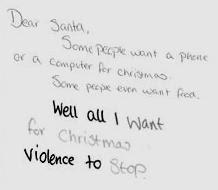 Dear Santa,
Some people want a phone
or a computer for christmas.
Some people even want food.
Well all I want
for Christmas
violence to Stop.